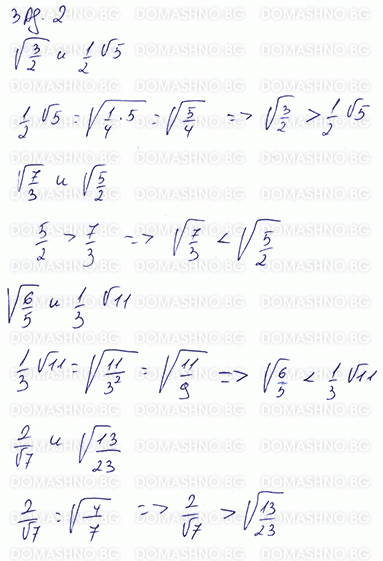 Зад. 2
√(3/2) и 1/2 √5
1/2 √5 = √(1/4 · 5) = √(5/4) => √(3/2) > 1/2 √5
√(7/3) и √(5/2)
5/2 > 7/3 => √(7/3) < √(5/2)
√(6/5) и 1/3 √11
1/3 √11 = √(11/3²) = √(11/9) => √(6/5) < 1/3 √11
2/√7 и √(13/23)
2/√7 = √(4/7) => 2/√7 > √(13/23)
DOMASHNO.BG